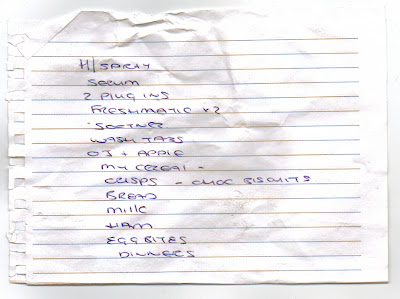 H/SPRAY
SERUM
2 PLUG INS
FRESHMATIC x2
SOFTNER
WASH TABS
OJ + APPLE
MY CEREAL -
CRISPS - CHOC BISCUITS
BREAD
MILK
HAM
EGG BITES
DINNERS